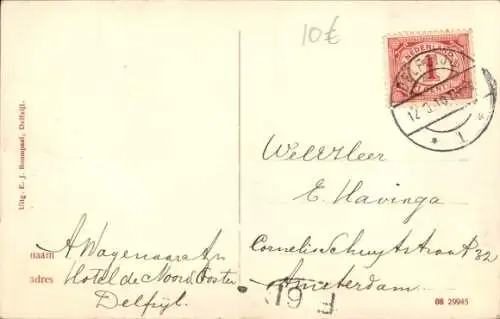 10€
NEDERLAND
1
CENT
DELFZIJL
12.3.10
1
Uitg. E. J. Boompaal, Delfzijl.
WelEdHeer
E. Havinga
Cornelis Schuytstraat 32
Amsterdam
naam A. Wagenaar
adres Hotel de Noord Ooster
Delfzijl.
19
F
08 29945